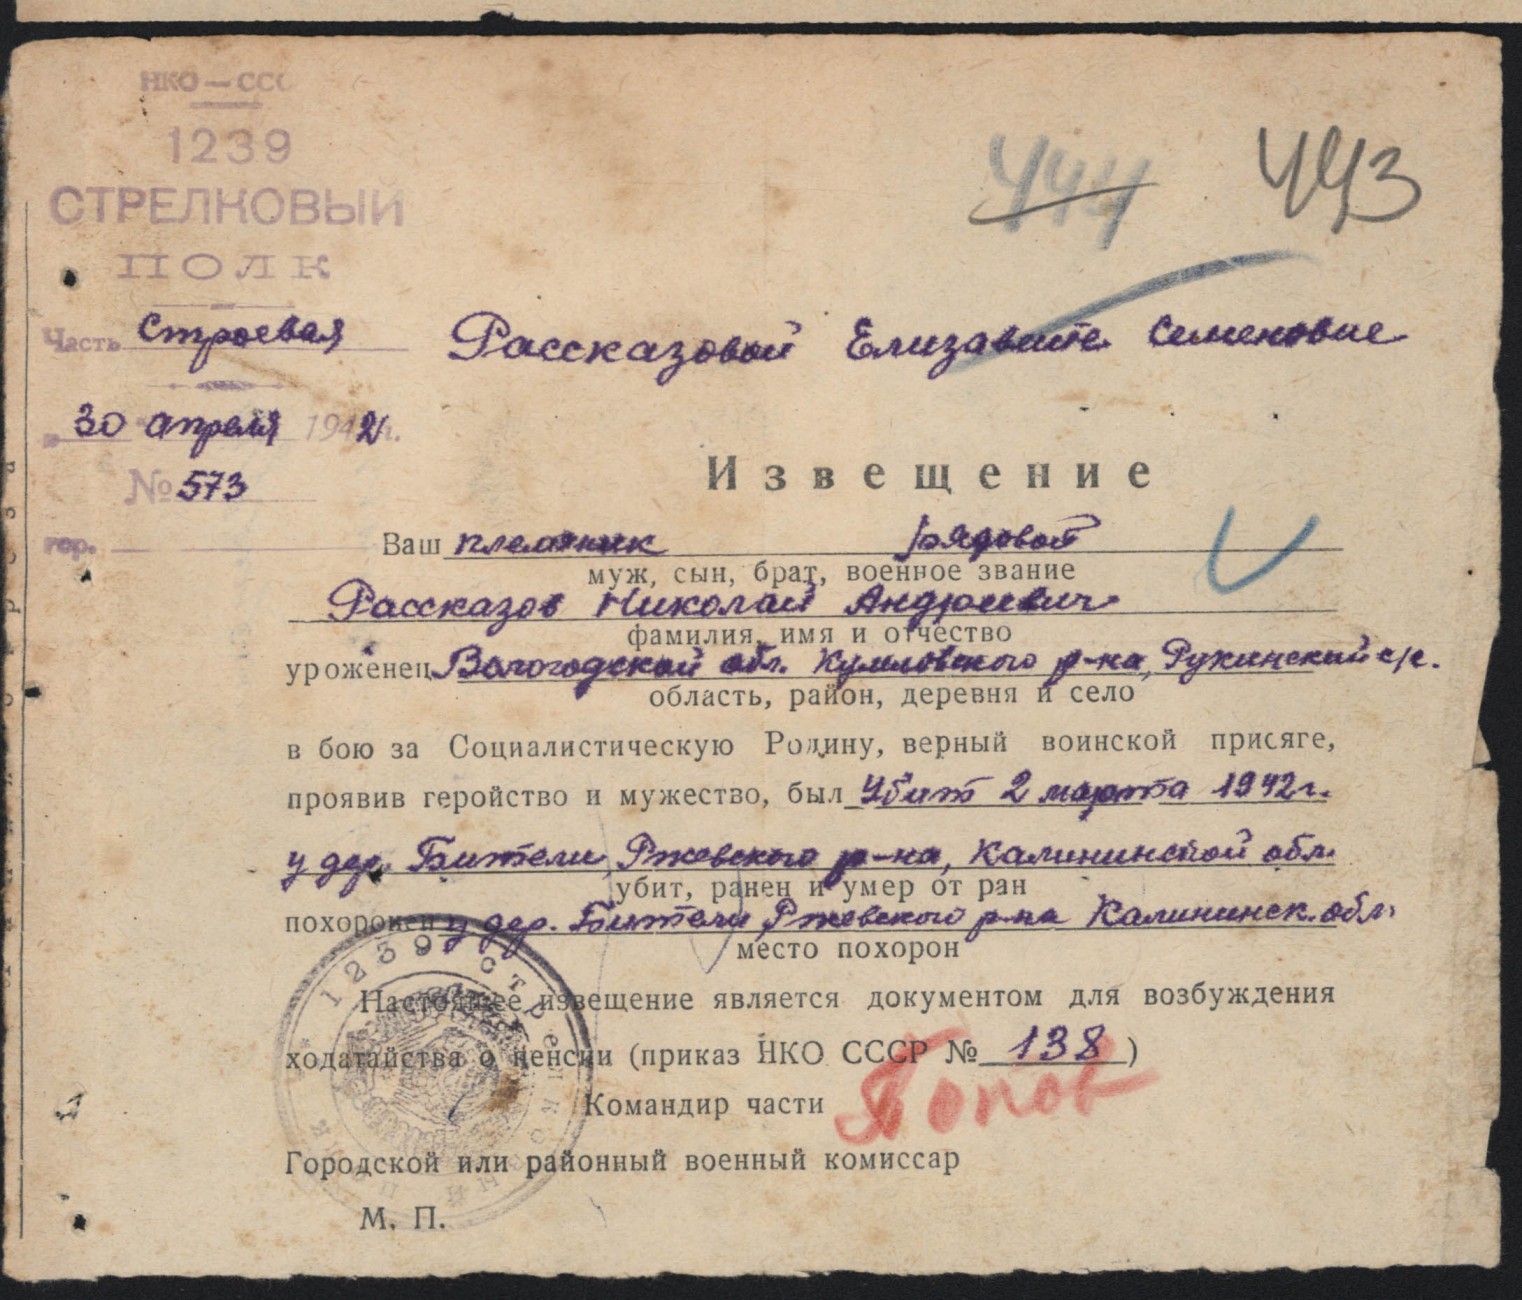 НКО — ССС
1239
СТРЕЛКОВЫЙ
ПОЛК
444 443
Часть Строевая
Рассказовой Елизавете Семеновне
30 апреля 1942 г.
№ 573
гор.
Извещение
Ваш племяник рядовой
муж, сын, брат, военное звание
Рассказов Николай Андреевич
фамилия, имя и отчество
уроженец Вологодской обл. р-на, с/с.
область, район, деревня и село
в бою за Социалистическую Родину, верный воинской присяге,
проявив геройство и мужество, был Убит 2 марта 1942 г.
у дер. Бители, Ржевского р-на, Калининской обл.
убит, ранен и умер от ран
похоронен у дер. Бители Ржевского р-на Калининск. обл.
место похорон
Настоящее извещение является документом для возбуждения
ходатайства о пенсии (приказ НКО СССР № 138)
Командир части Попов
Городской или районный военный комиссар
М. П.
1239 СТРЕЛКОВЫЙ ПОЛК